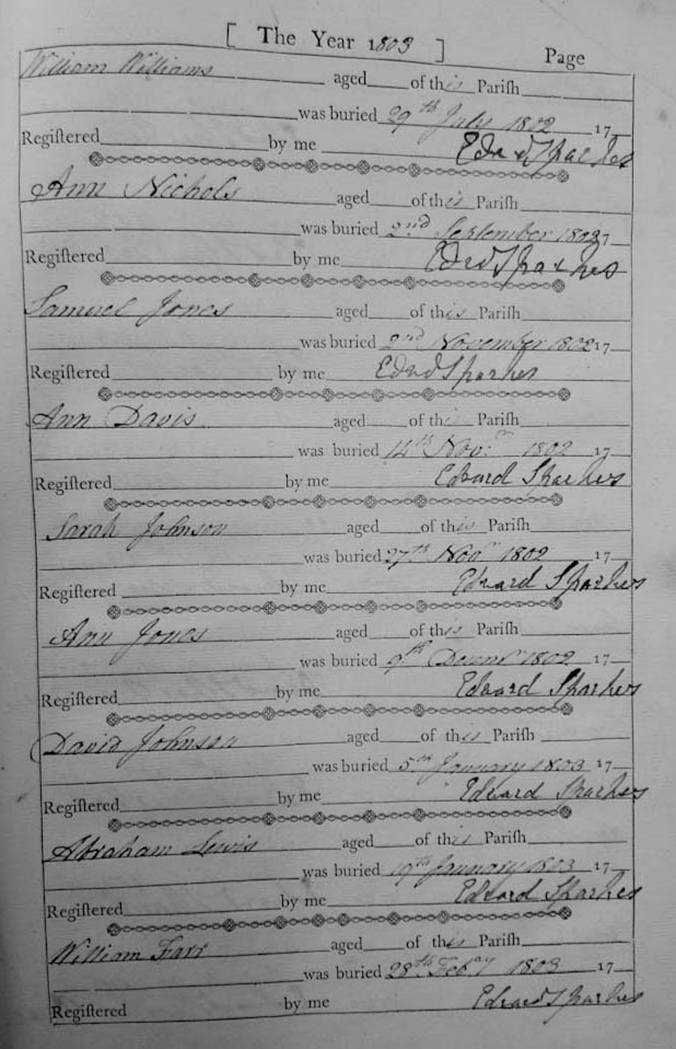 [ The Year 1803 ] Page
William Williams aged of this Pariſh
was buried 29th July 1802 17
Regiſtered by me Edwd Sparkes
Ann Nichols aged of this Pariſh
was buried 2nd September 1802 17
Regiſtered by me Edwd Sparkes
Samuel Jones aged of this Pariſh
was buried 2nd November 1802 17
Regiſtered by me Edwd Sparkes
Ann Davis aged of this Pariſh
was buried 14th Novr 1802 17
Regiſtered by me Edward Sparkes
Sarah Johnson aged of this Pariſh
was buried 27th Novr 1802 17
Regiſtered by me Edward Sparkes
Ann Jones aged of this Pariſh
was buried 9th Decemr 1802 17
Regiſtered by me Edward Sparkes
David Johnson aged of this Pariſh
was buried 5th January 1803 17
Regiſtered by me Edward Sparkes
Abraham Lewis aged of this Pariſh
was buried 19th January 1803 17
Regiſtered by me Edward Sparkes
William Farr aged of this Pariſh
was buried 28th Feby 1803 17
Regiſtered by me Edward Sparkes